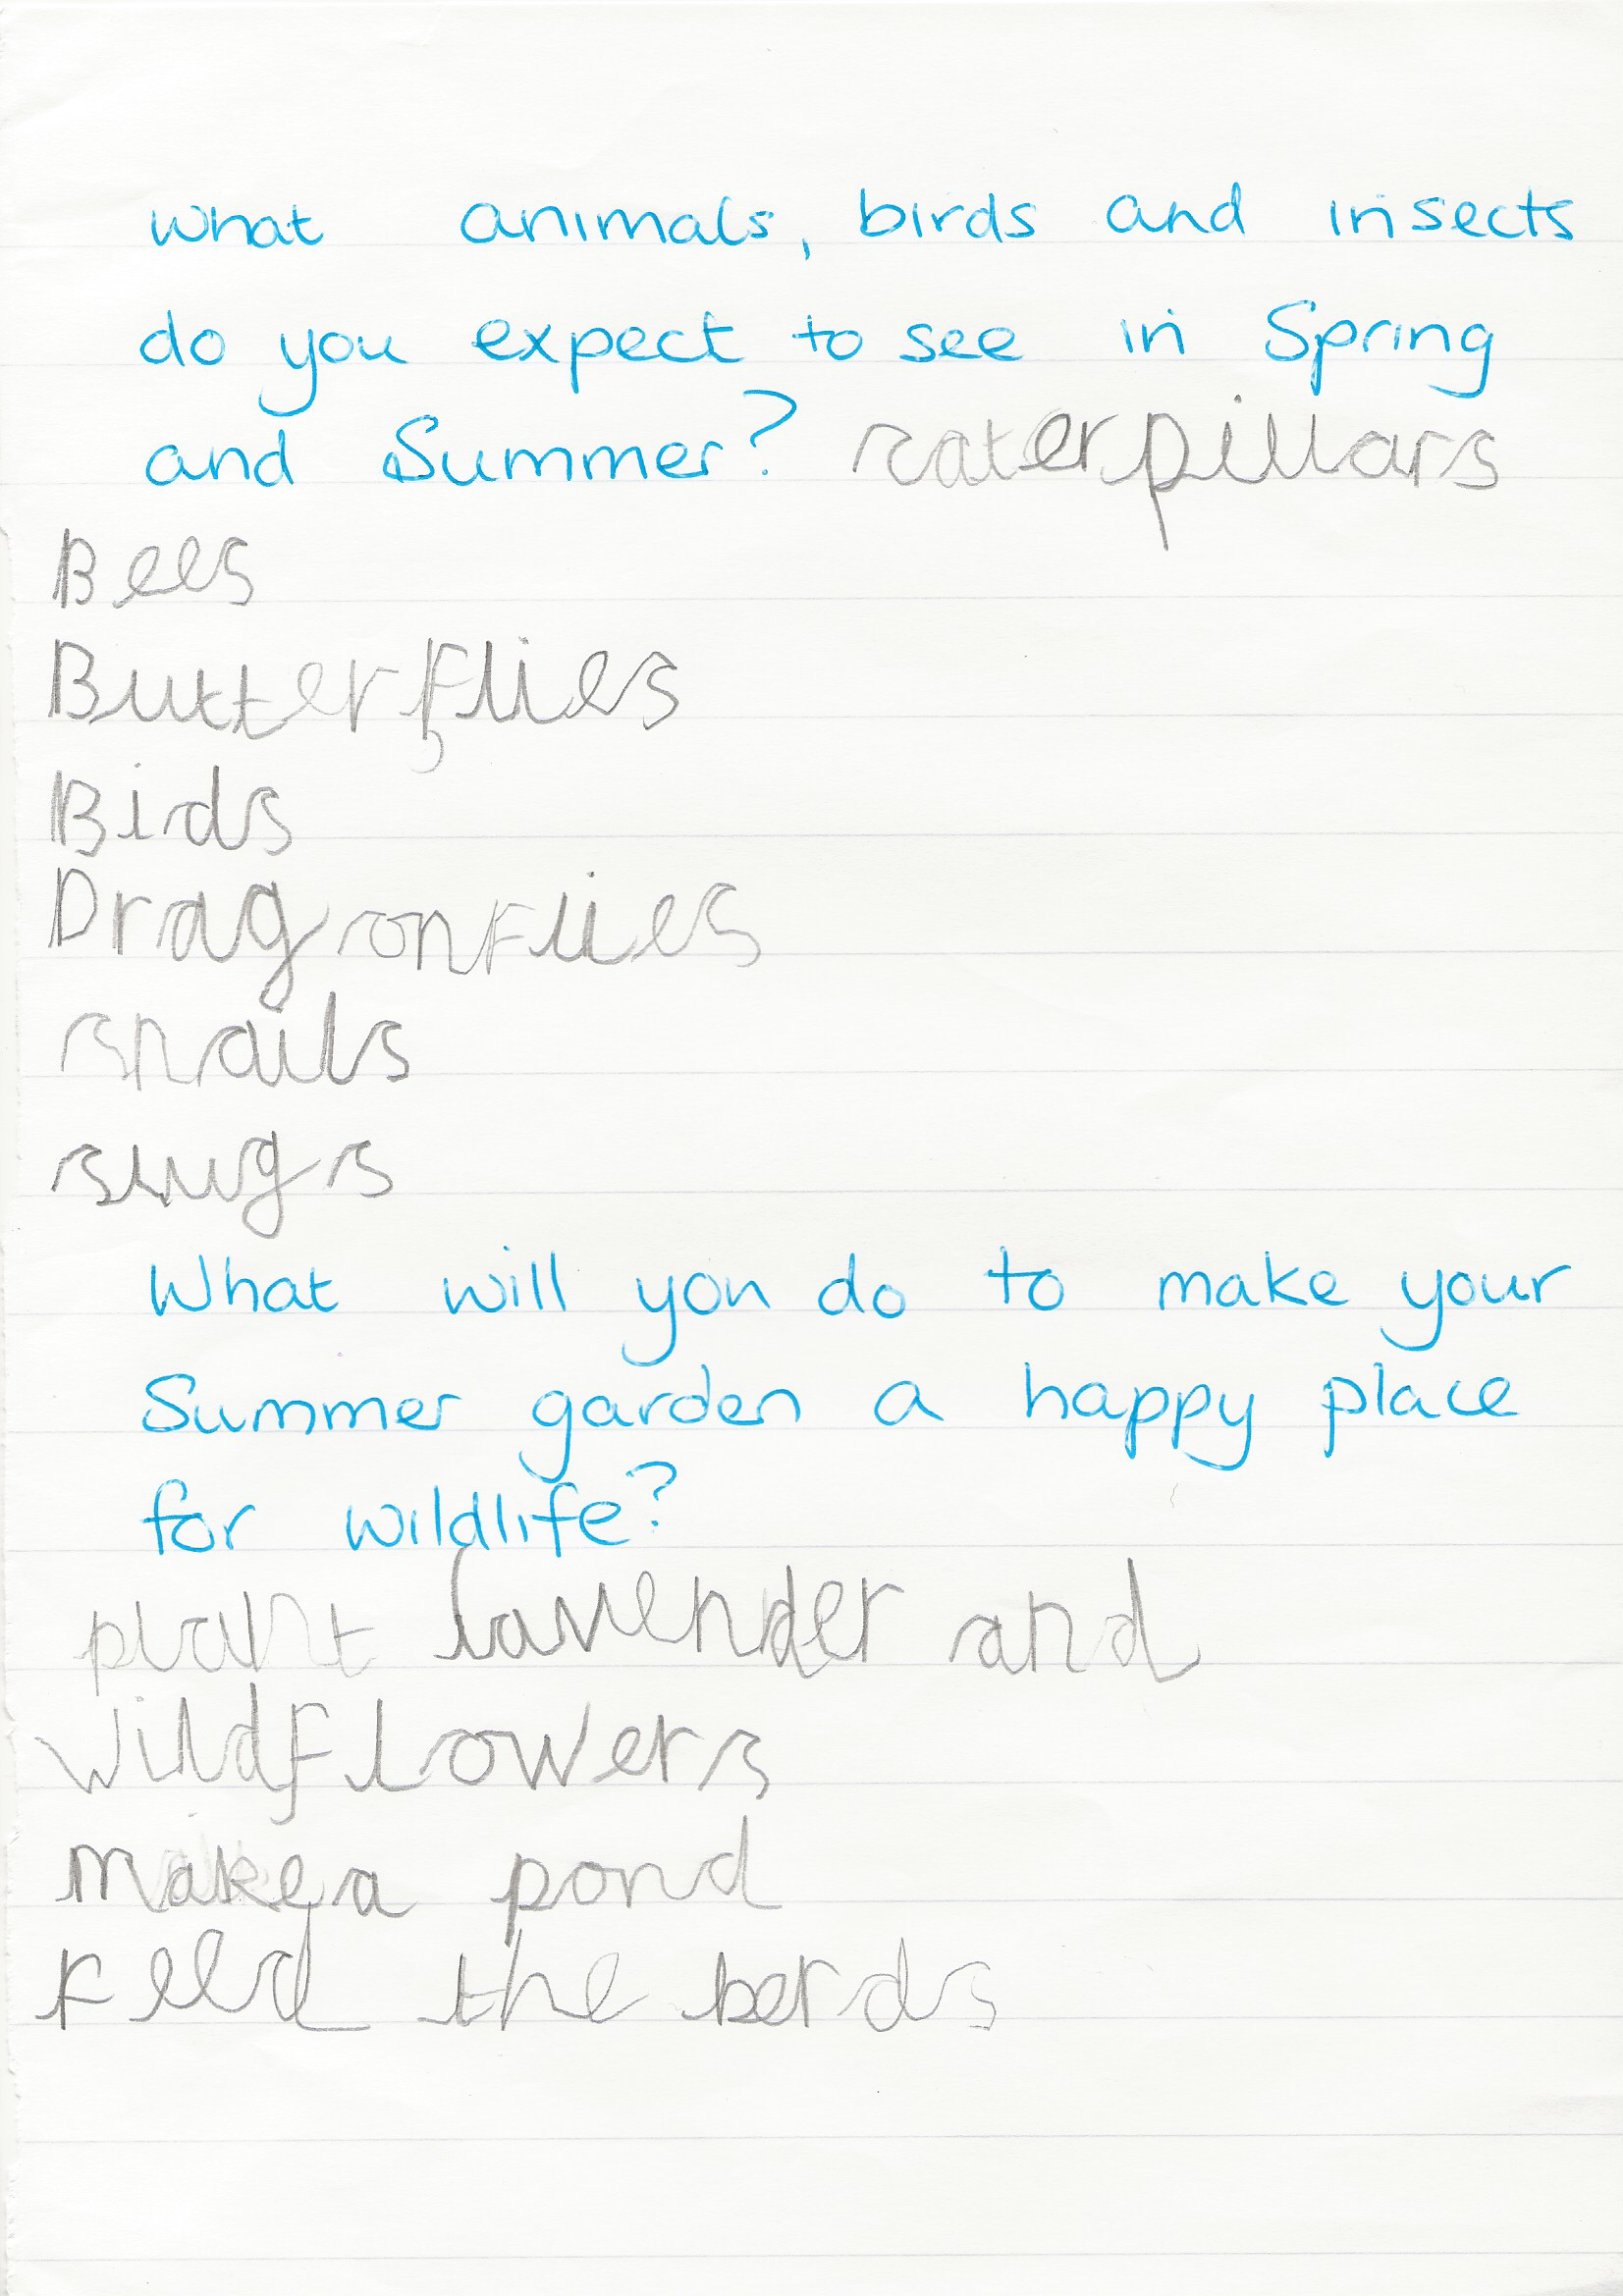 what animals, birds and insects
do you expect to see in Spring
and Summer? caterpillars
Bees
Butterflies
Birds
Dragonflies
snails
slugs
What will you do to make your
Summer garden a happy place
for wildlife?
plant lavender and
wildflowers
make a pond
Feed the berds